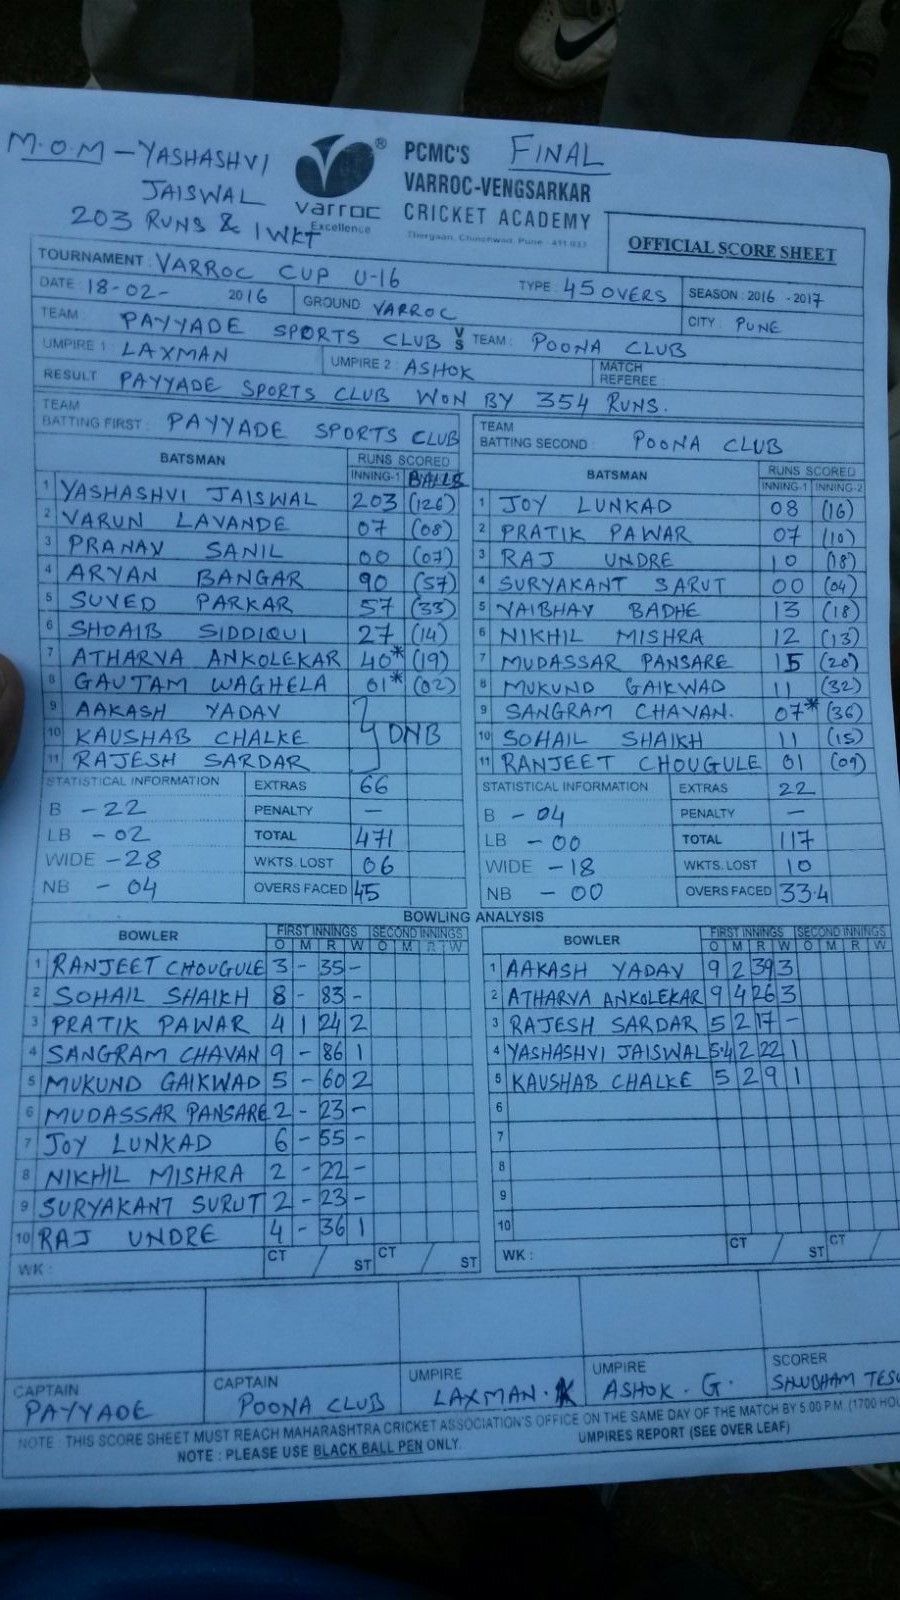 M.O.M - YASHASHVI
JAISWAL
203 RUNS & 1 WKT
varroc
Excellence
®
PCMC'S
VARROC-VENGSARKAR
CRICKET ACADEMY
Thergaon, Chinchwad, Pune - 411 033
FINAL
OFFICIAL SCORE SHEET
TOURNAMENT : VARROC CUP U-16 TYPE : 45 OVERS SEASON : 2016 - 2017
DATE : 18-02- 2016 GROUND VARROC CITY : PUNE
TEAM : PAYYADE SPORTS CLUB VS TEAM : POONA CLUB
UMPIRE 1 : LAXMAN UMPIRE 2 : ASHOK MATCH REFEREE :
RESULT PAYYADE SPORTS CLUB WON BY 354 RUNS.
TEAM BATTING FIRST : PAYYADE SPORTS CLUB
BATSMAN RUNS SCORED
INNING-1 BALLS
1 YASHASHVI JAISWAL 203 (126)
2 VARUN LAVANDE 07 (08)
3 PRANAV SANIL 00 (07)
4 ARYAN BANGAR 90 (57)
5 SUVED PARKAR 57 (33)
6 SHOAIB SIDDIQUI 27 (14)
7 ATHARVA ANKOLEKAR 40* (19)
8 GAUTAM WAGHELA 01* (02)
9 AAKASH YADAV
10 KAUSHAB CHALKE DNB
11 RAJESH SARDAR
STATISTICAL INFORMATION EXTRAS 66
B - 22 PENALTY -
LB - 02 TOTAL 471
WIDE - 28 WKTS. LOST 06
NB - 04 OVERS FACED 45
TEAM BATTING SECOND : POONA CLUB
BATSMAN RUNS SCORED
INNING-1 INNING-2
1 JOY LUNKAD 08 (16)
2 PRATIK PAWAR 07 (10)
3 RAJ UNDRE 10 (18)
4 SURYAKANT SARUT 00 (04)
5 VAIBHAV BADHE 13 (18)
6 NIKHIL MISHRA 12 (13)
7 MUDASSAR PANSARE 15 (20)
8 MUKUND GAIKWAD 11 (32)
9 SANGRAM CHAVAN. 07* (36)
10 SOHAIL SHAIKH 11 (15)
11 RANJEET CHOUGULE 01 (09)
STATISTICAL INFORMATION EXTRAS 22
B - 04 PENALTY -
LB - 00 TOTAL 117
WIDE - 18 WKTS. LOST 10
NB - 00 OVERS FACED 33.4
BOWLING ANALYSIS
BOWLER FIRST INNINGS SECOND INNINGS
O M R W O M R W
1 RANJEET CHOUGULE 3 - 35 -
2 SOHAIL SHAIKH 8 - 83 -
3 PRATIK PAWAR 4 1 24 2
4 SANGRAM CHAVAN 9 - 86 1
5 MUKUND GAIKWAD 5 - 60 2
6 MUDASSAR PANSARE 2 - 23 -
7 JOY LUNKAD 6 - 55 -
8 NIKHIL MISHRA 2 - 22 -
9 SURYAKANT SURUT 2 - 23 -
10 RAJ UNDRE 4 - 36 1
WK : CT / ST CT / ST
BOWLER FIRST INNINGS SECOND INNINGS
O M R W O M R W
1 AAKASH YADAV 9 2 39 3
2 ATHARVA ANKOLEKAR 9 4 26 3
3 RAJESH SARDAR 5 2 17 -
4 YASHASHVI JAISWAL 5.4 2 22 1
5 KAUSHAB CHALKE 5 2 9 1
6
7
8
9
10
WK : CT / ST CT /
CAPTAIN PAYYADE
CAPTAIN POONA CLUB
UMPIRE LAXMAN. K
UMPIRE ASHOK. G.
SCORER SHUBHAM
NOTE : THIS SCORE SHEET MUST REACH MAHARASHTRA CRICKET ASSOCIATION'S OFFICE ON THE SAME DAY OF THE MATCH BY 5.00 P.M. (1700
NOTE : PLEASE USE BLACK BALL PEN ONLY. UMPIRES REPORT (SEE OVER LEAF)